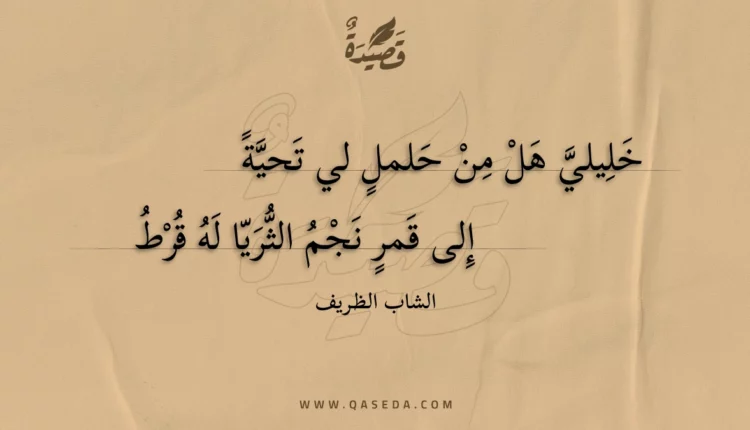 قَصِيْدَةٌ
خَلِيليَّ هَلْ مِنْ حَلملٍ لي تَحيَّةً
إِلى قَمرٍ نَجْمُ الثُّرَيّا لَهُ قُرْطُ
الشاب الظريف
WWW.QASEDA.COM